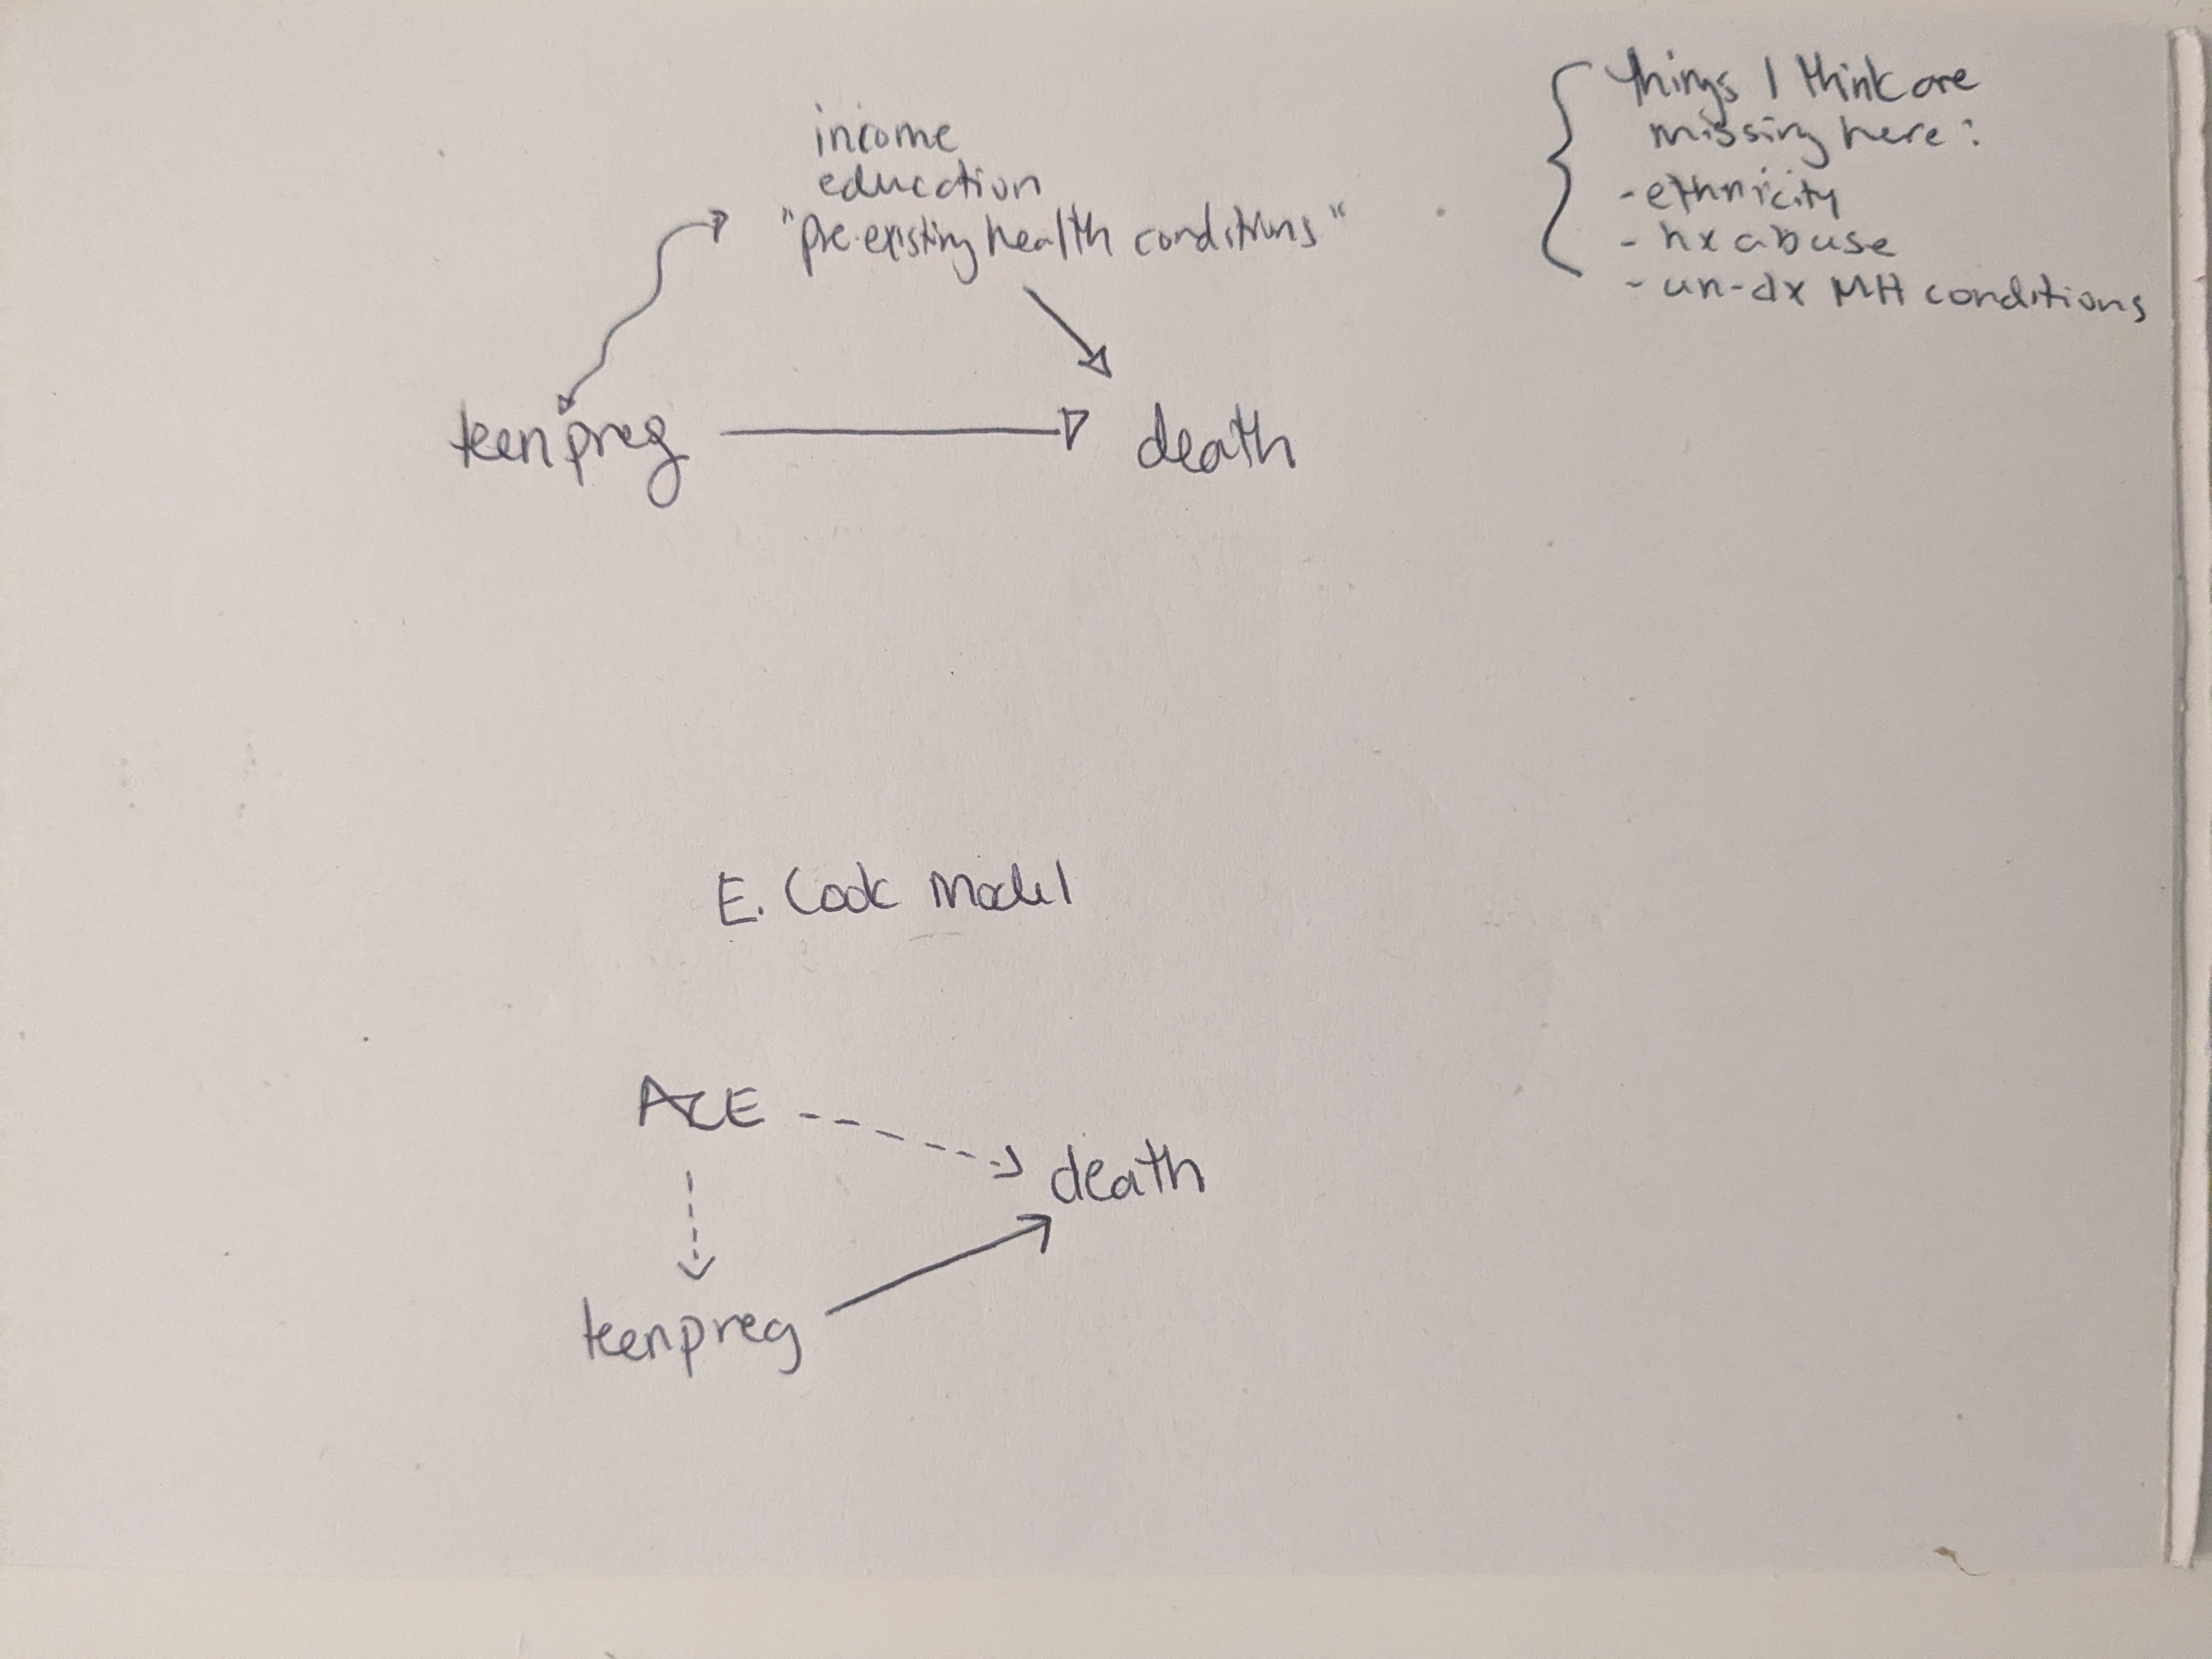 income
education
"pre-existing health conditions"
teenpreg
death
things I think are
missing here:
- ethnicity
- hx abuse
- un-dx MH conditions
E. Cook Model
ACE
death
teenpreg